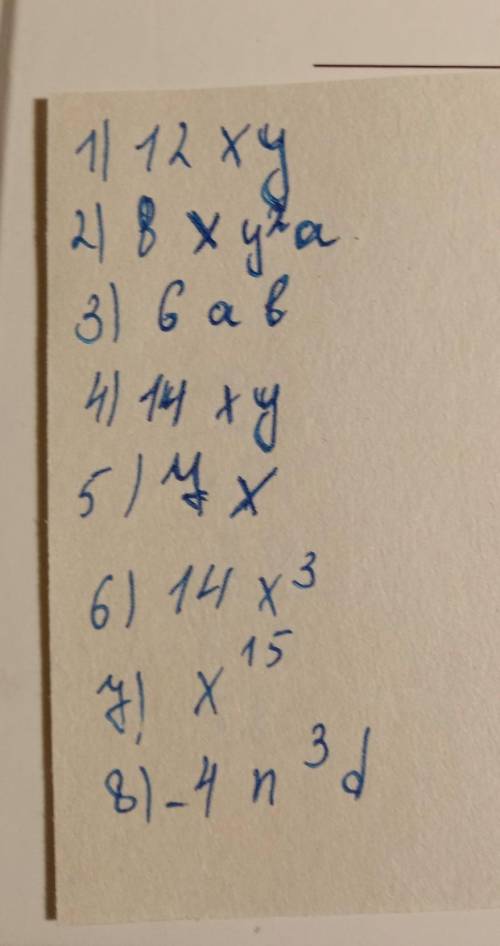 1) 12 xy
2) 8 xy²a
3) 6 a b
4) 14 xy
5) 7 x
6) 14 x³
7) x¹⁵
8) -4 n³d